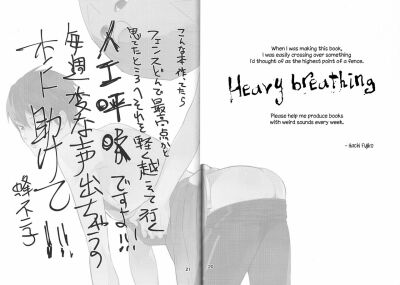 こんな本作ってたら
フェンスどんで最高点かと
思てたところへそれを軽く越えて行く
人工呼吸ですよ!!!
毎週変な声出ちゃうの
ホント助けて!!!
蜂不二子
21
When I was making this book,
I was easily crossing over something
I'd thought of as the highest point of a fence.
Heavy breathing
Please help me produce books
with weird sounds every week.
- Hachi Fujiko
20